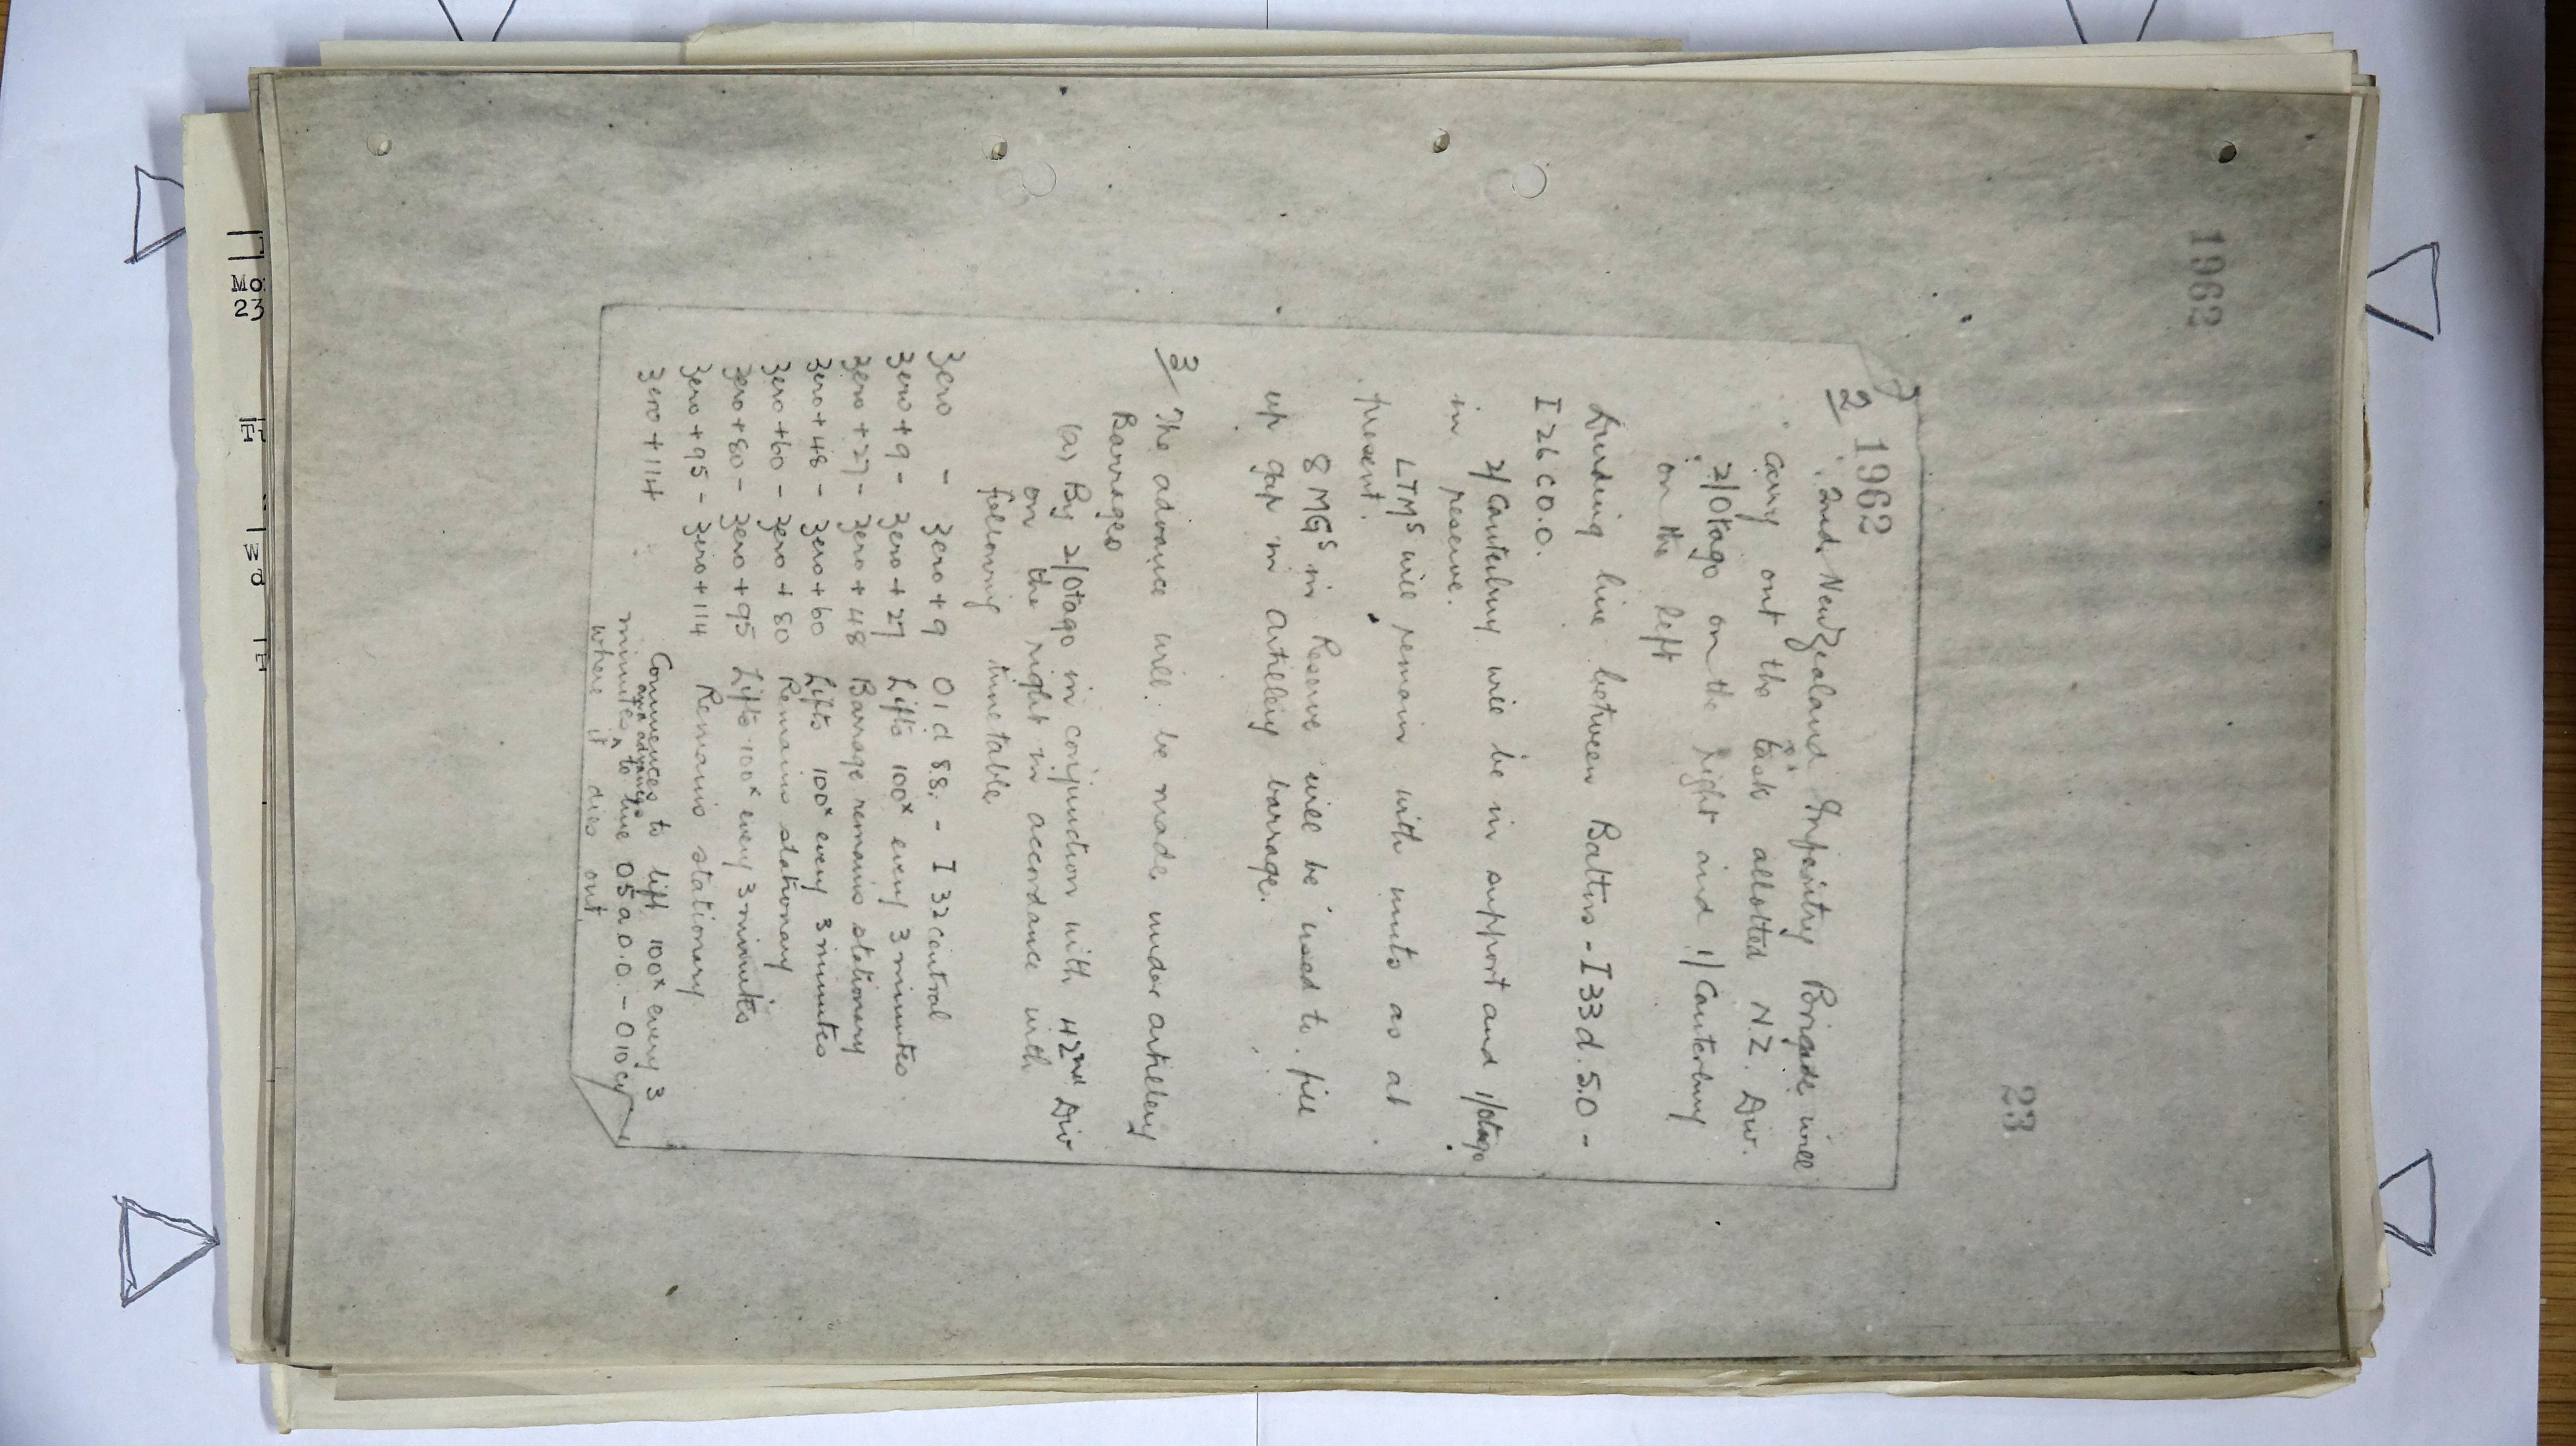 1962
23
1962
2/ 2nd New Zealand Infantry Brigade will
carry out the task allotted N.Z. Div.
2/Otago on the right and 1/Canterbury
on the left
Dividing line between Battns - I33d.5.0 -
I26c0.0.
2/Canterbury will be in support and 1/Otago
in reserve.
LTMs will remain with units as at
present.
8 MGs in Reserve will be used to fill
up gap in artillery barrage.
3/ The advance will be made under artillery
Barrages
(a) By 2/Otago in conjunction with 42nd Div
on the right in accordance with
following time table
Zero - Zero + 9 O1d 8.8. - I 32 central
Zero + 9 - Zero + 27 Lifts 100x every 3 minutes
Zero + 27 - Zero + 48 Barrage remains stationary
Zero + 48 - Zero + 60 Lifts 100x every 3 minutes
Zero + 60 - Zero + 80 Remains stationary
Zero + 80 - Zero + 95 Lifts 100x every 3 minutes
Zero + 95 - Zero + 114 Remains stationary
Zero + 114 Commences to lift 100x every 3
and advances
minutes ^ to line O5a.0.0. - O10c
where it dies out.
Mo
23